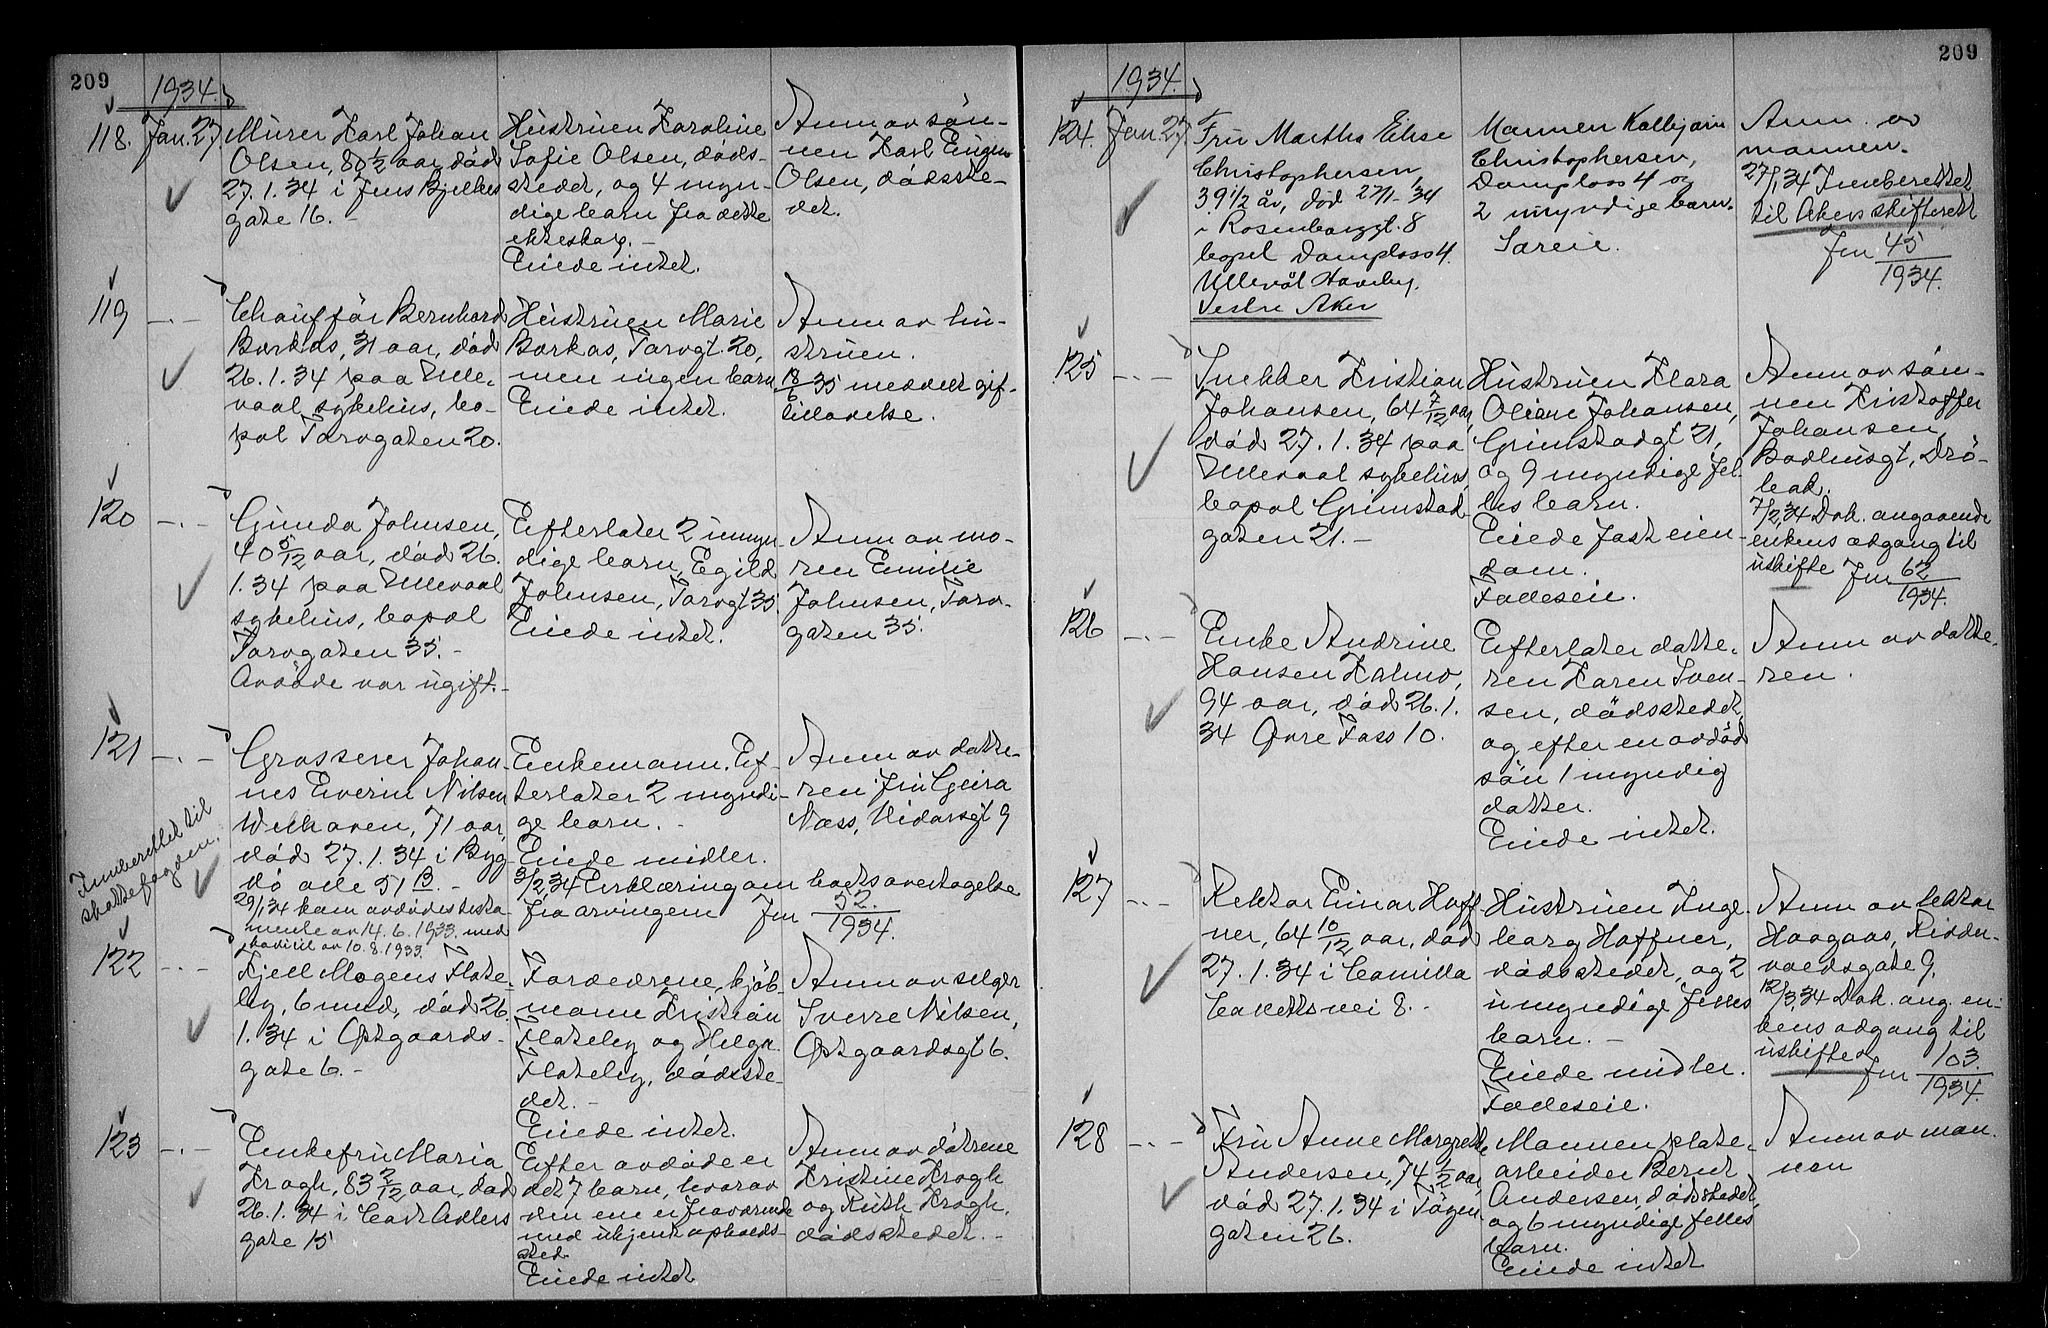 209
1934.
118. Jan. 27 Murer Karl Johan
Olsen, 80 1/2 aar, död
27.1.34 i Jens Bjelkes
gate 16. -
Hustruen Karoline
Sofie Olsen, döds-
stedet, og 4 myn-
dige barn fra dette
ekteskap. -
Eiede intet.
Anm av sön-
nen Karl Eugen
Olsen, dödsste-
det.
119 -.- Chaufför Bernhard
31 aar, död
26.1.34 paa Ulle-
vaal sykehus, bo-
pæl Torvgaten 20.
Hustruen Marie
20,
men ingen barn
Eiede intet.
Anm av hu-
struen.
18/6 35 meddelt gif-
tilladelse.
120 -.- Gunda Johnsen,
40 5/12 aar, död 26.
1.34 paa Ullevaal
sykehus, bopæl
Torvgaten 35. -
Avdöde var ugift. -
Efterlater 2 umyn
dige barn, Egild
Johnsen, Torvgt 35.
Eiede intet.
Anm av mo-
ren Emilie
Johnsen, Torv-
gaten 35.
121 -.- Grosserer Johan-
nes Everin Nilsen
Welhaven, 71 aar,
död 27.1.34 i Byg-
dö alle 51 B. -
29/1 34 kom avdödes testa-
mente av 14.6.1933 med
kodicil av 10.8.1933.
Innberettet til
skattefogden.
Enkemann. Ef-
terlater 2 myndi-
ge barn. -
Eiede midler.
3/2 34 Erklæring om boets overtagelse
fra arvingene Jnr 52/1934.
Anm av datte-
ren fru Geira
Næss, Nidarsgt 9
122 -.- Kjell Mogens Flate-
by, 6 mnd, död 26.
1.34 i Östgaards-
gate 6. -
Foreldrene, kjöb-
mann Kristian
Flateby og Helga
Flateby, dödsste-
det. -
Eiede intet.
Anm av selger
Sverre Nilsen,
Östgaardsgt 6.
123 -.- Enkefru Maria
Krogh, 83 2/12 aar, död
26.1.34 i Cort Adlers
gate 15
Efter avdöde er
det 7 barn, hvorav
den ene er fraværende
med ukjent opholds-
sted.
Eiede intet
Anm av dötrene
Kristine Krogh
og Ruth Krogh,
dödsstedet. -
209
1934.
124. Jan. 27. Fru Martha Elise
Christophersen,
39 1/2 år, död 27/1-34
i Rosenborggt. 8
bopel Damplass 4.
Ullevål Haveby.
Vestre Aker
Mannen Kolbjørn
Christophersen,
Damplass 4 og
2 umyndige barn.
Særeie.
Anm. av
mannen.
27/1 34 Innberettet
til Akers skifterett
Jnr 45/1934.
125 -.- Snekker Kristian
Johansen, 64 7/12 aar,
död 27.1.34 paa
Ullevaal sykehus,
bopæl Grimstad-
gaten 21. -
Hustruen Klara
Oliane Johansen,
Grimstadgt 21,
og 9 myndige fel-
les barn.
Eiede fast eien-
dom.
Fælleseie.
Anm av sön-
nen Kristoffer
Johansen,
Badhusgt, Drö-
bak.
7/2 34 Dok. angaaende
enkens adgang til
uskifte Jnr 62/1934.
126 -.- Enke Andrine
Hansen Kalmo,
94 aar, död 26.1.
34 Övre Foss 10.
Efterlater datte-
ren Karen Sven-
sen, dödsstedet,
og efter en avdöd
sön 1 myndig
datter.
Eiede intet.
Anm av datte-
ren.
127 -.- Rektor Einar Höff-
ner, 64 10/12 aar, död
27.1.34 i Camilla
Colletts vei 8. -
Hustruen Inge-
borg Höffner,
dödsstedet, og 2
umyndige felles
barn. -
Eiede midler.
Fælleseie.
Anm av lektor
Haagaas, Ridder-
voldsgate 9.
12/3 34 Dok. ang. en-
kens adgang til
uskifte. Jnr 103/1934.
128 -.- Fru Anne Margrethe
Andersen, 74 1/2 aar,
död 27.1.34 i Töyen-
gaten 26.
Mannen plate-
arbeider Bernt
Andersen, dödsstedet,
og 6 myndige felles
barn.
Eiede intet
Anm av man-
nen